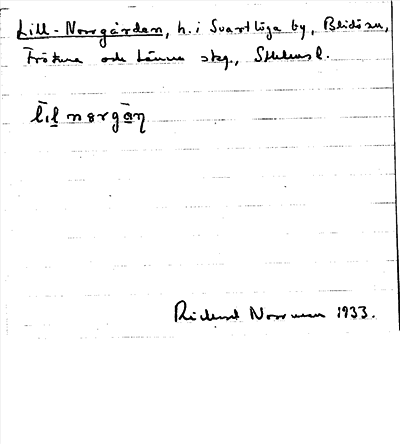 Lill-Norrgården, h. i Svartlöga by, Blidö sn,
Frötuna och Länna skg., Sthlms l.
l̄ɪl nørgān̥
Rickard Norrman 1933.